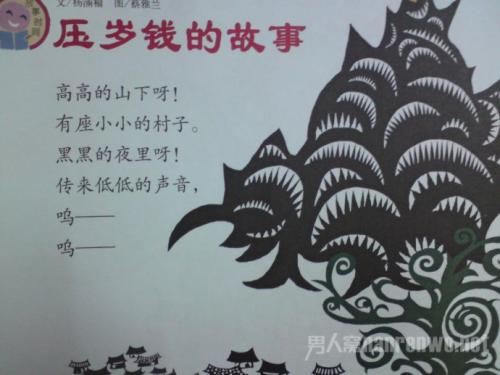 故事时间
文/杨湳福 图/蔡雅兰
压岁钱的故事
高高的山下呀!
有座小小的村子。
黑黑的夜里呀!
传来低低的声音,
呜——
呜——
男人窝nanrenwo.net